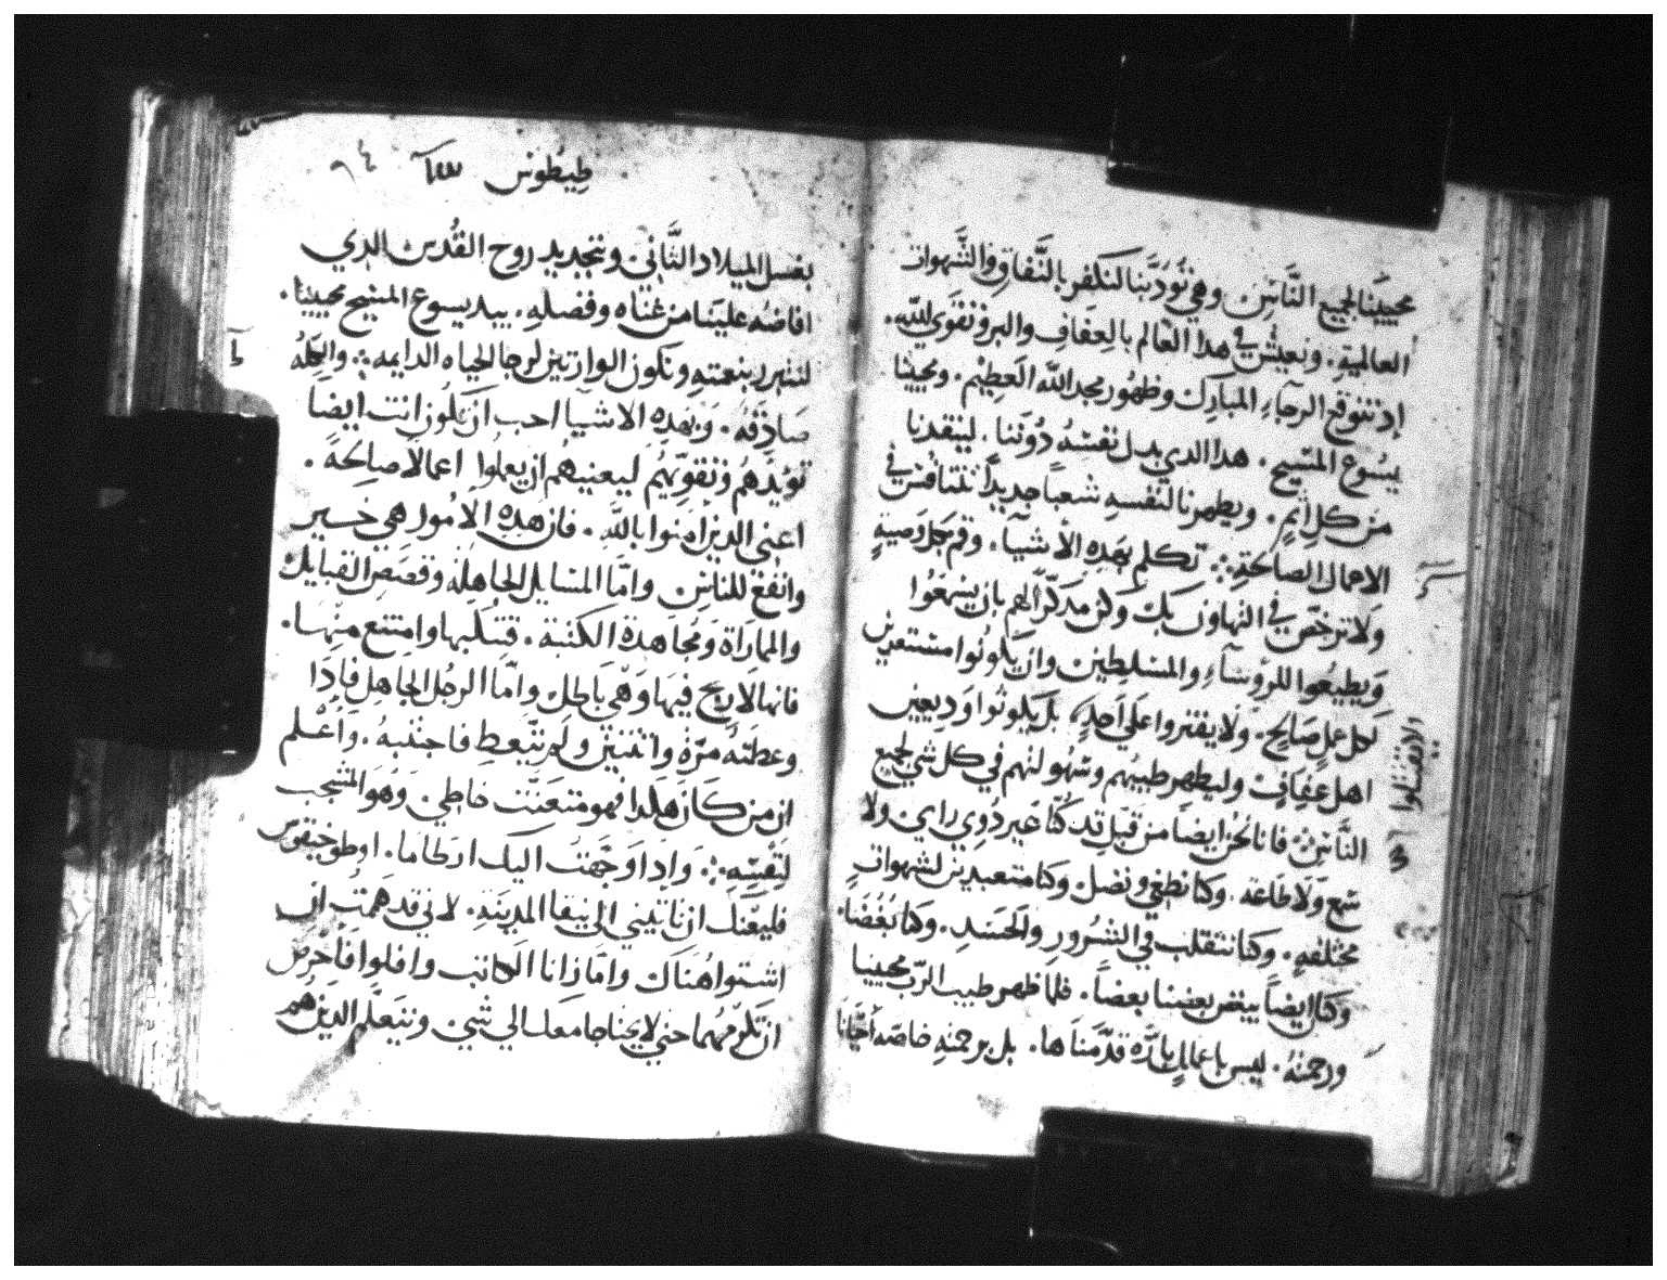 محيينا لجميع الناس. وهي تُودّبنا لنكفر بالنفاق والشهوات
العالمية. ونعيش في هذا العالم بالعفاف والبر وتقوي لله.
إذ نتوقع الرجاء المبارك وظهور مجد الله العظيم. ومحيينا
يسوع المسيح. هدا الدي بدل نفسه دوننا. لينقدنا
من كل اثم. ويطهرنا لنفسه شعباً جديداً نتنافس في
الاعمال الصالحة. تكلم بهده الأشيآ. وقم بكل وصية
ولا ترخص في التهاون بك ولكن مدكراً لهم بان يسمعوا
ويطيعوا للرؤسآء والمسلطين وان يكونوا مستعدين
لكل عمل صالح. ولا يفتروا علي أحد، بل يكونوا وديعين
اهل عفاف وليظهر طيبهم وسهولتهم في كل شي لجميع
الناس فانا نحن ايضا من قبل قد كنا غير دوي راي ولا
سمع ولا طاعة. وكنا نطغي ونضل وكنا متعبدين لشهوات
مختلفه. وكنا نتقلب في الشرور والحسد. وكنا بُغضا.
وكنا ايضاً يبغض بعضنا بعضاً. فلما ظهر طيب الرب محيينا
ورحمته. ليس باعمال بارّه قدّمناها. بل برحمته خاصه أحيانا
ولا يقتتلوا
طيطوس
بغسل الميلاد الثاني وتجديد روح القدس الدي
افاضه علينا من غناه وفضله. بيد يسوع المسيح محيينا.
لنتبرر بنعمته ونكون الوارتين لرجا الحياه الدايمه والكلمه
صادقه. وبهده الاشيآ احب ان تكون انت ايضا
تؤيدهم وتقويهم ليعنيهم ان يعملوا اعمالا صالحة.
اعني الدين امنوا بالله. فان هده الأمور هي خير
وانفع للناس وامّا المسايل الجاهلة وقصص القبايل
والماراة ومجاهدة الكتبة. فتنكبها وامتنع منها.
فانها لا ربح فيها وهي باطل وامّا الرجل الجاهل فادا
وعظته مرّة واتنتين ولم يتعظ فاجتنبه. واعلم
ان من كان هكدا فهو متعنت خاطي وهو المشجب
لنفسه وادا وجهت اليك ارطاما. او طوخيقوس
فليعنك ان تاتيني الي نيقا المدينة. لاني قد هممت ان
اشتوا هناك وامّا زانا الكاتب وافلوا فاحرص
ان تكرمهما حتي لا يحتاجا معك الي شي وليتعلم الدين هم